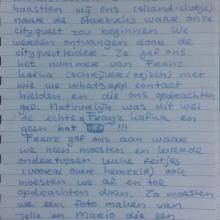 haastten wij ons (eiland-clubje)
naar de Starbucks waar onze
cityquest zou beginnen. We
werden ontvangen door de
cityquestleidster. Ze gaf ons
het nummer van Franz
Kafka (schrijver/Tsjech) met
wie we whatsapp contact
hielden en die ons opdrachten
gaf. Natuurlijk was dit wel
de echte Franz Kafka en
geen bot !!!
Franz gaf ons aan waar
we heen moesten en leverde
ondertussen leuke feitjes
(vooral over hemzelf) ook
moesten we af en toe
opdrachten doen. Zo moesten
we een foto maken van
Jelle en Mario die een